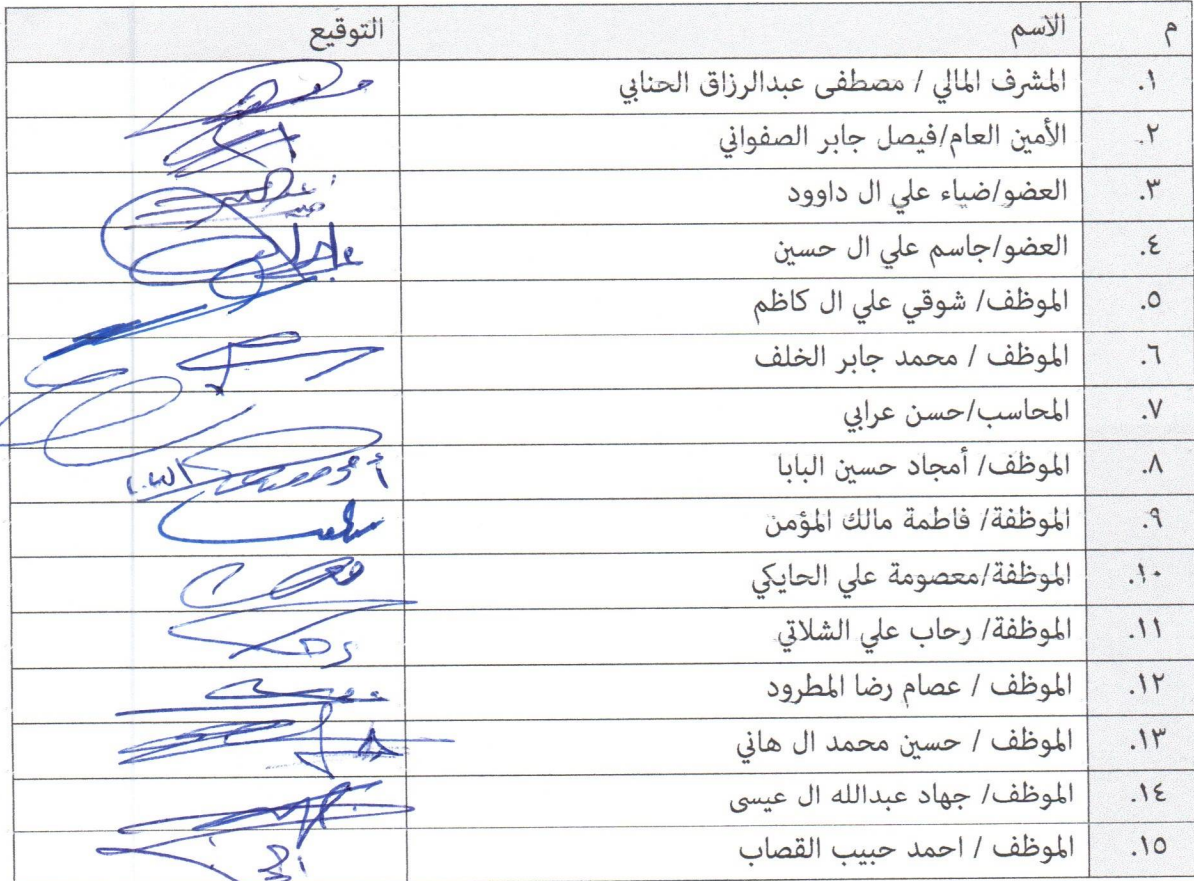 م الاسم التوقيع
١. المشرف المالي / مصطفى عبدالرزاق الحنابي
٢. الأمين العام/فيصل جابر الصفواني
٣. العضو/ضياء علي ال داوود
٤. العضو/جاسم علي ال حسين
٥. الموظف/ شوقي علي ال كاظم
٦. الموظف / محمد جابر الخلف
٧. المحاسب/حسن عرابي
٨. الموظف/ أمجاد حسين البابا
٩. الموظفة/ فاطمة مالك المؤمن
١٠. الموظفة/معصومة علي الحايكي
١١. الموظفة/ رحاب علي الشلاتي
١٢. الموظف / عصام رضا المطرود
١٣. الموظف / حسين محمد ال هاني
١٤. الموظف/ جهاد عبدالله ال عيسى
١٥. الموظف / احمد حبيب القصاب